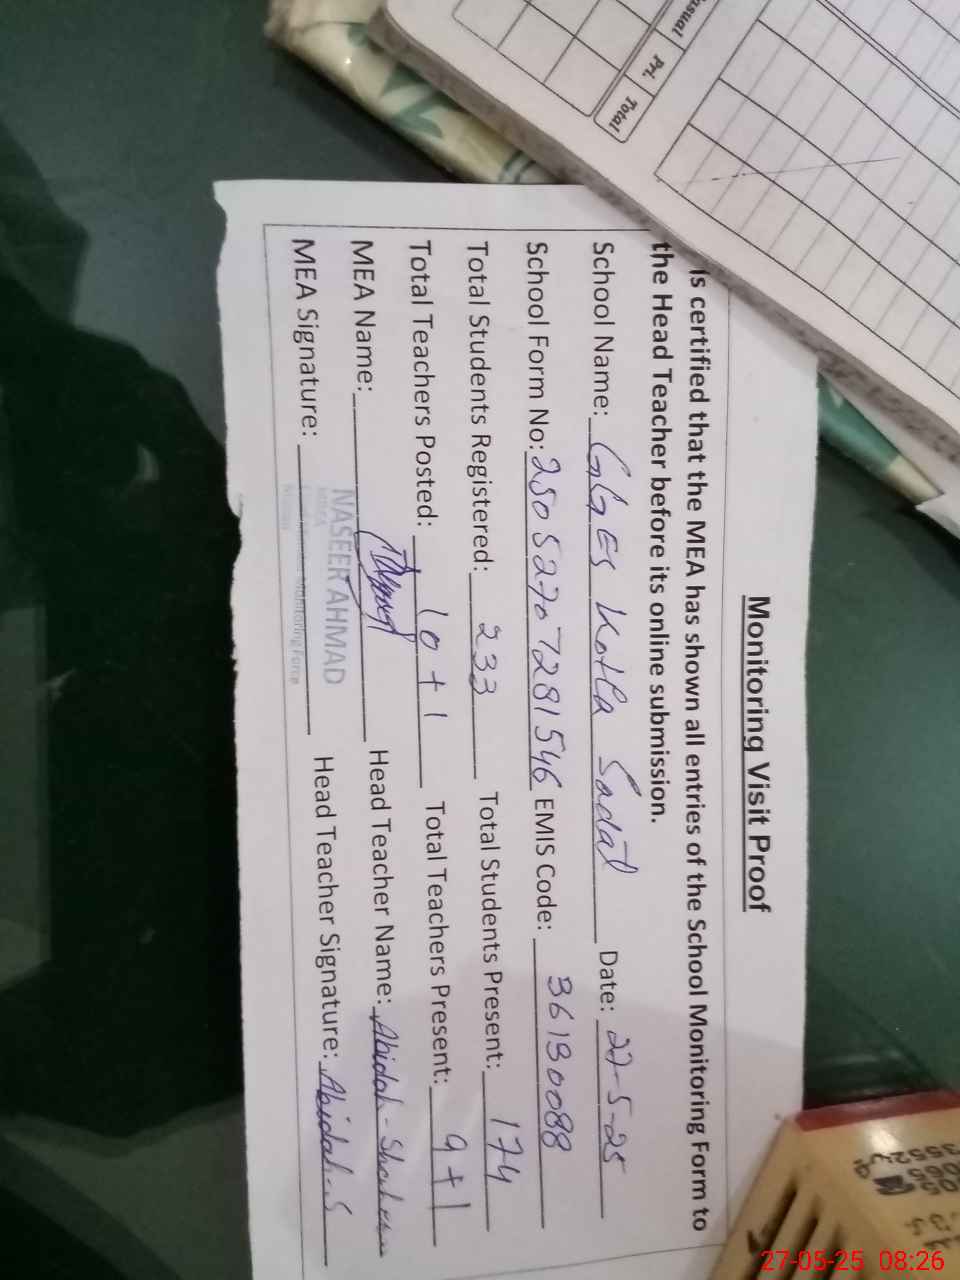 Casual Pri. Total
Monitoring Visit Proof
Is certified that the MEA has shown all entries of the School Monitoring Form to
the Head Teacher before its online submission.
School Name: GGES Kotla Sadat Date: 27-5-25
School Form No: 25052707281546 EMIS Code: 36130088
Total Students Registered: 233 Total Students Present: 174
Total Teachers Posted: 10 + 1 Total Teachers Present: 9 + 1
MEA Name: Head Teacher Name: Abidah - Shaheen
MEA Signature: Head Teacher Signature: Abidah. S
NASEER AHMAD
Monitoring Force
27-05-25 08:26